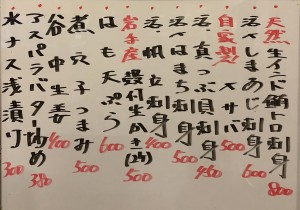 天然 生インド鮪トロ刺身 800
活〆しまあじ刺身 600
自家製 〆サバ 450
活 真つぶ貝刺身 500
活〆はまち刺身 400
活 帆立刺身 500
岩手産 殻付生かき(2ケ) 500
はも天ぷら 600
煮穴子つまみ 500
谷中生姜 400
アスパラバター炒め 380
水ナス浅漬け 300